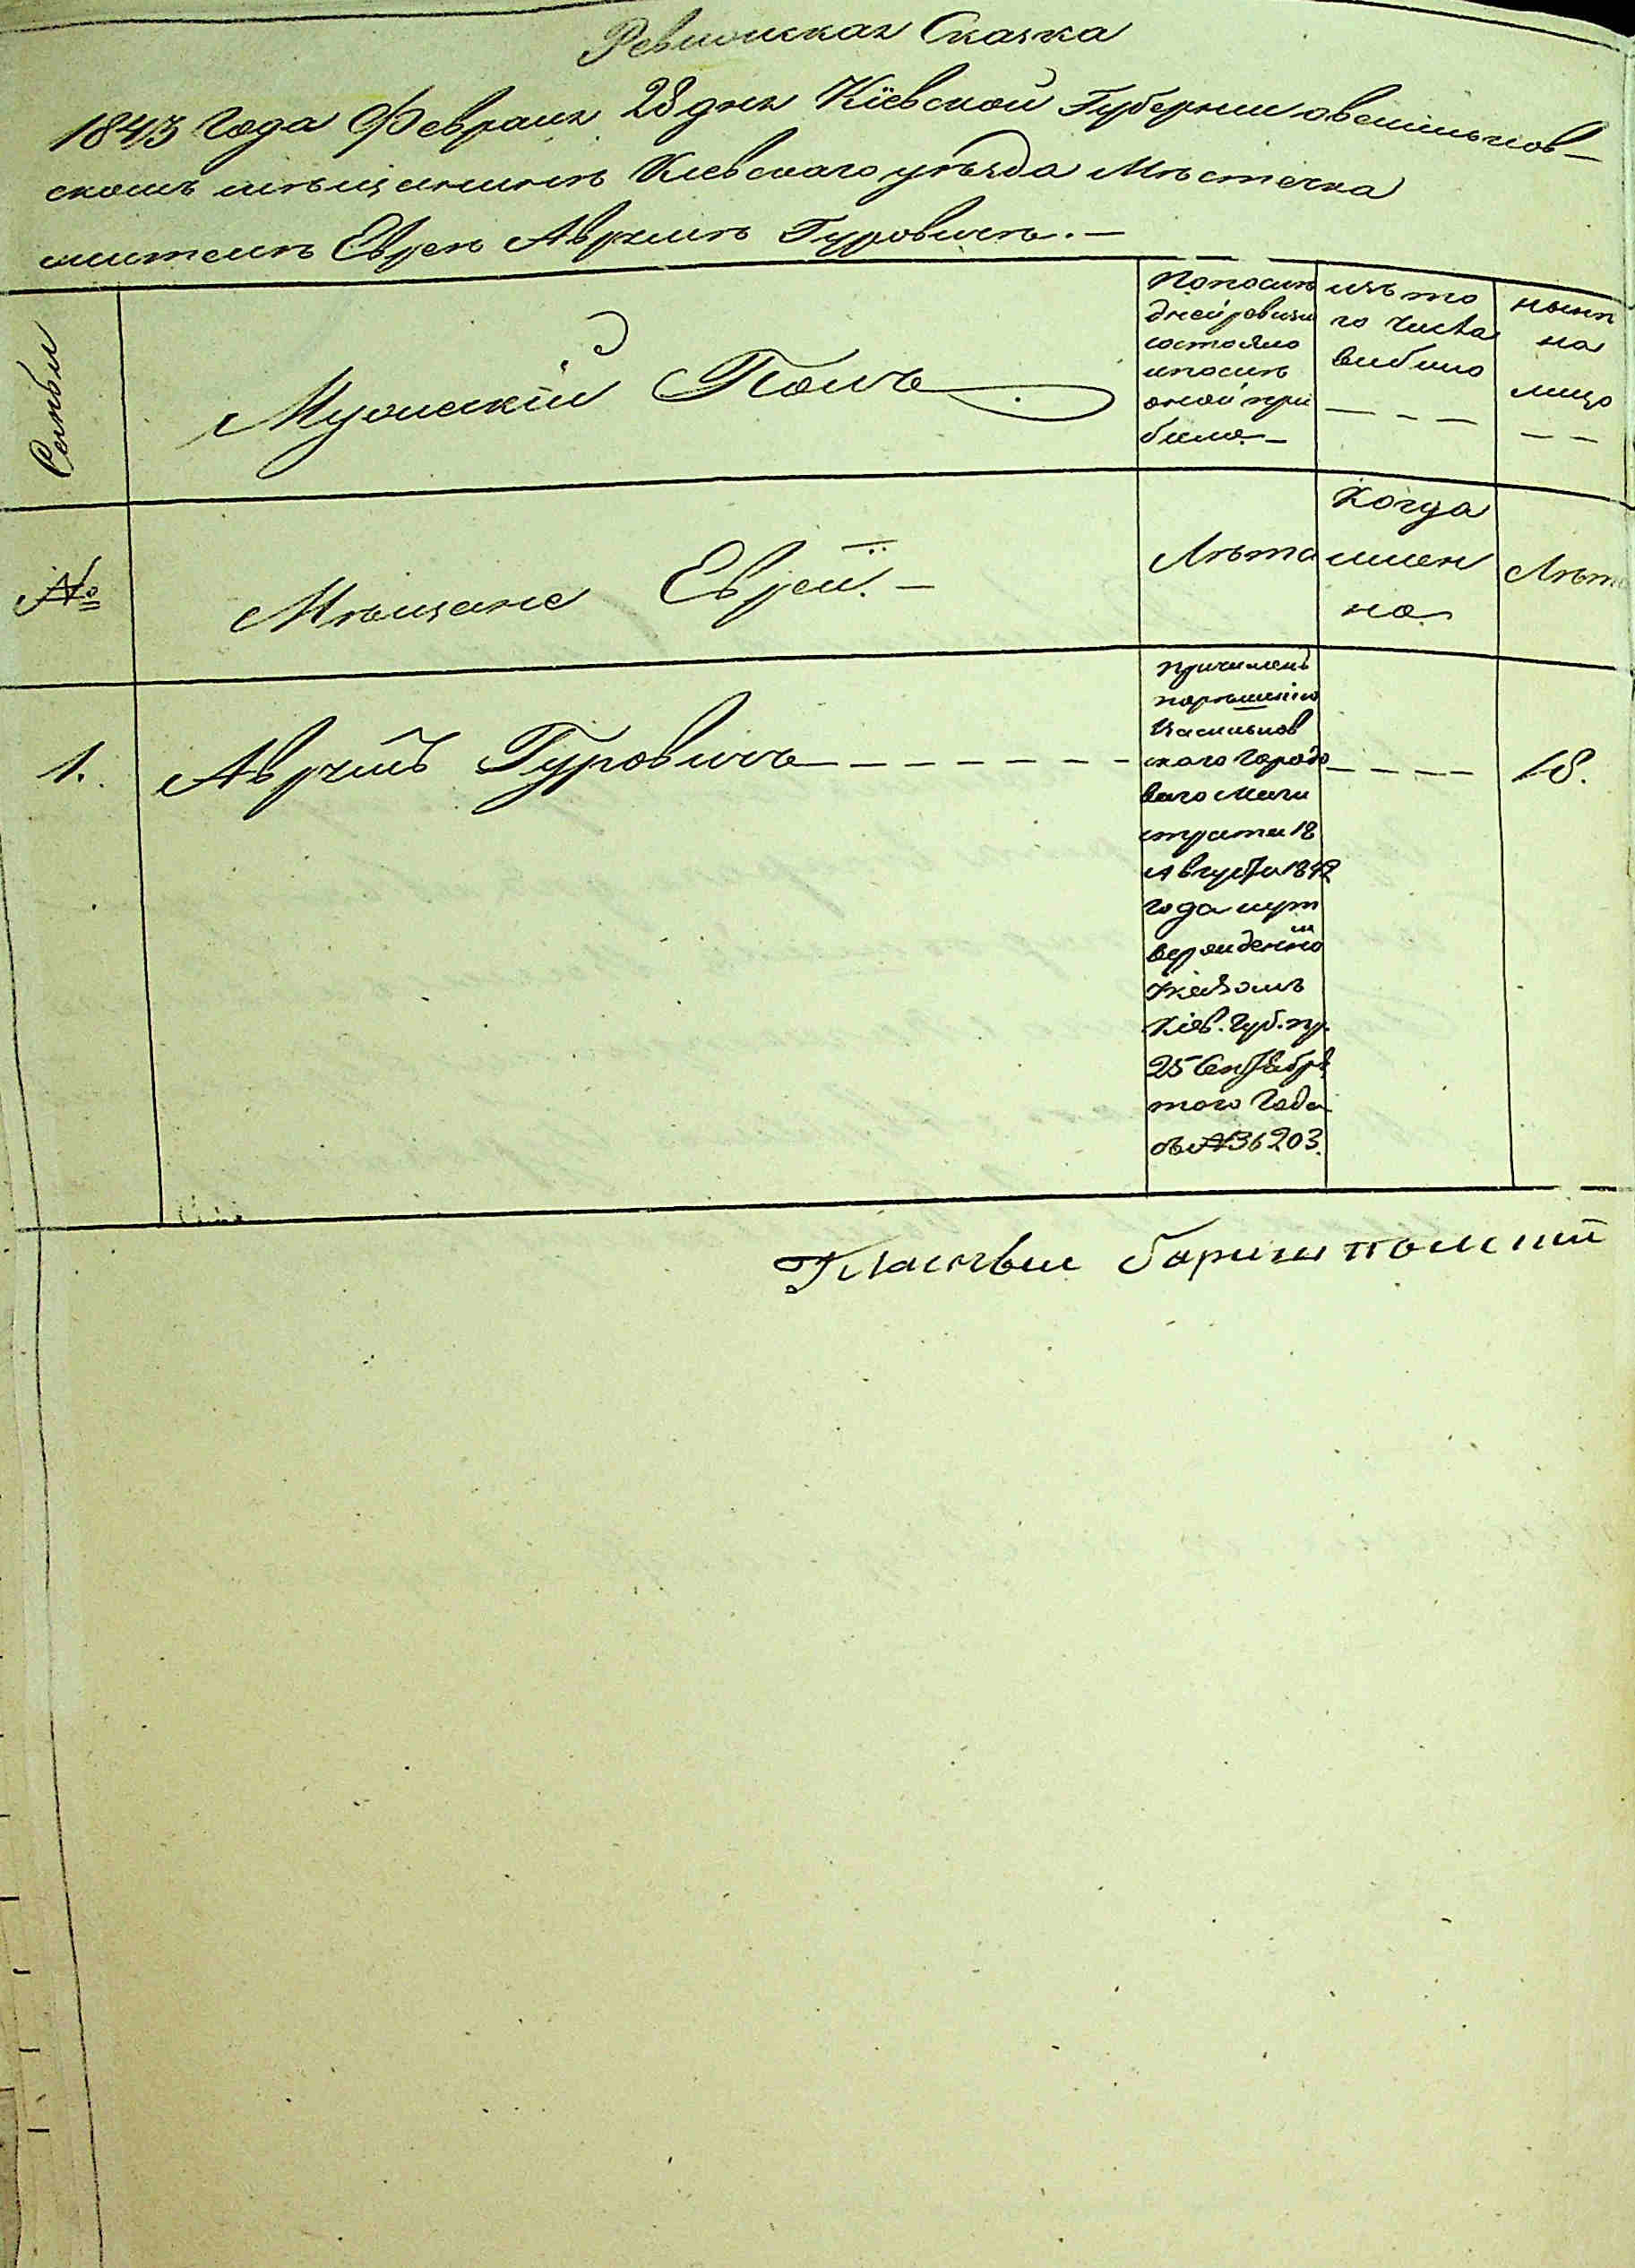 Ревизиская Сказка
1843 года Февраля 28 дня Кіевской Губерніи о васильков-
скомъ мѣщанинѣ Кіевскаго уѣзда Мѣстечка
жителѣ Евреѣ Аврумѣ Гуровичѣ.—
Семьи
Мужескій Полъ
Попослѣ
дней ревизіи
состояло
ипослѣ
оной при
было.—
изъ то
го числа
выбыло
— — —
нынѣ
на
лицо
— —
№
Мѣщане Евреи.—
Лѣта
Когда
имен
но
Лѣта
1. Аврумъ Гуровичъ — — — — — — —
Причисленъ
порѣшенію
Васильков
скаго Городо
ваго Маги
страта 18
Августа 1842
года иут
вержденію
Указомъ
Кіев. Губ. пр.
25 Сентября
того Года
за №36203.
— — — —
18.